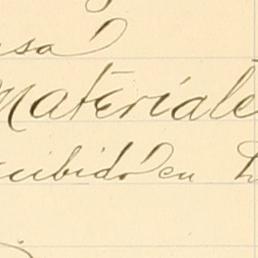 usa
Materiale
cibido en